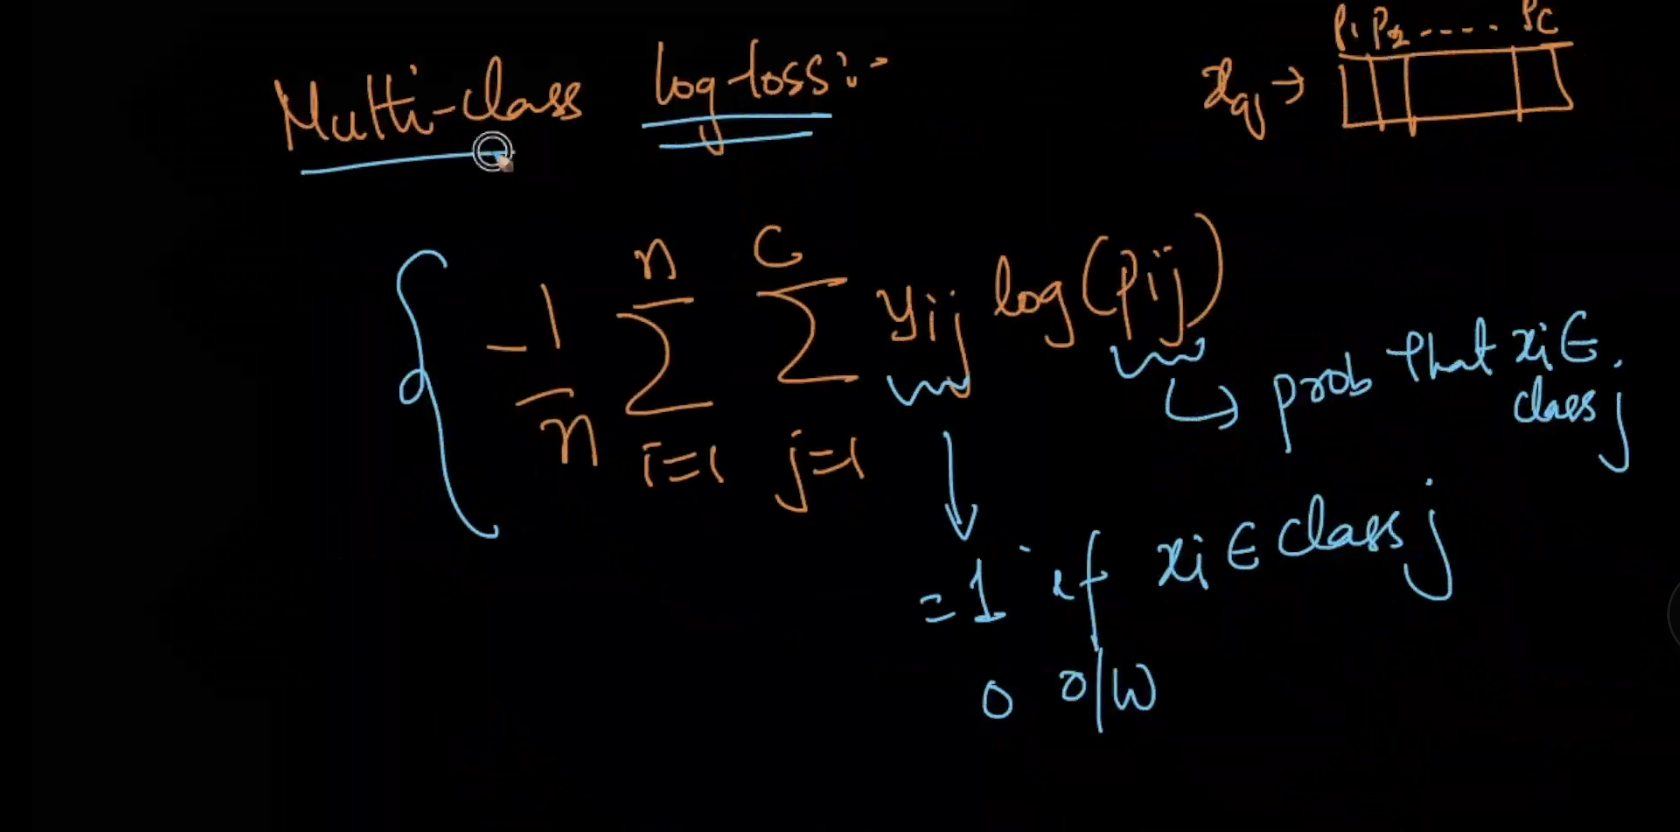 Multi-class log-loss:-
xq → P1 P2 ..... Pc
-1/n Σ i=1 n Σ j=1 C yij log(Pij)
↳ prob that xi ∈ class j
= 1 if xi ∈ class j
0 o/w